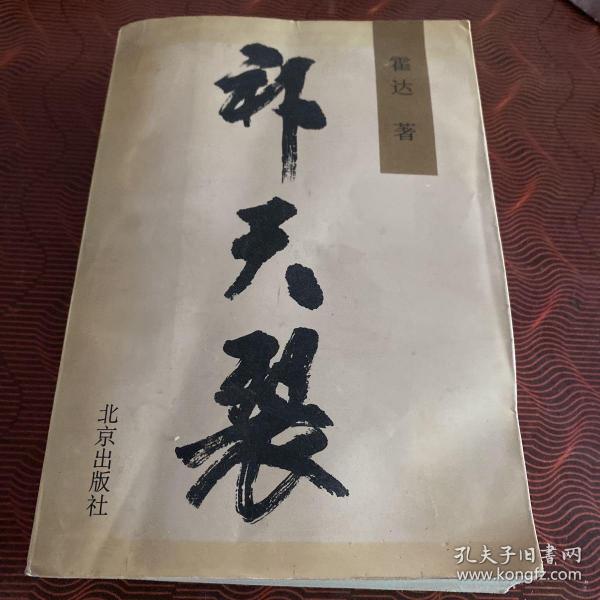 霍达 著
补天裂
北京出版社
孔夫子旧书网
www.kongfz.com